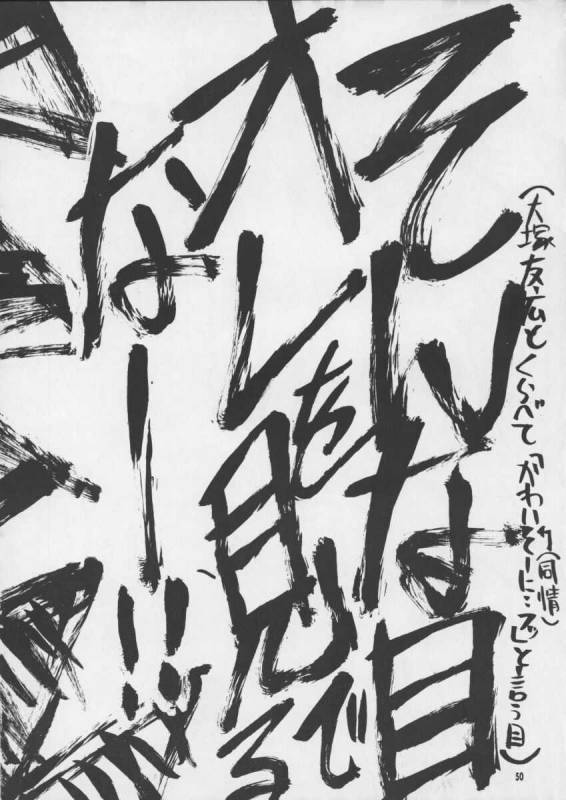 (大塚友広とくらべて「かわいそーに…プッ」と言う目)
(同情)
そんな目で
オレを見る
なー!!
50